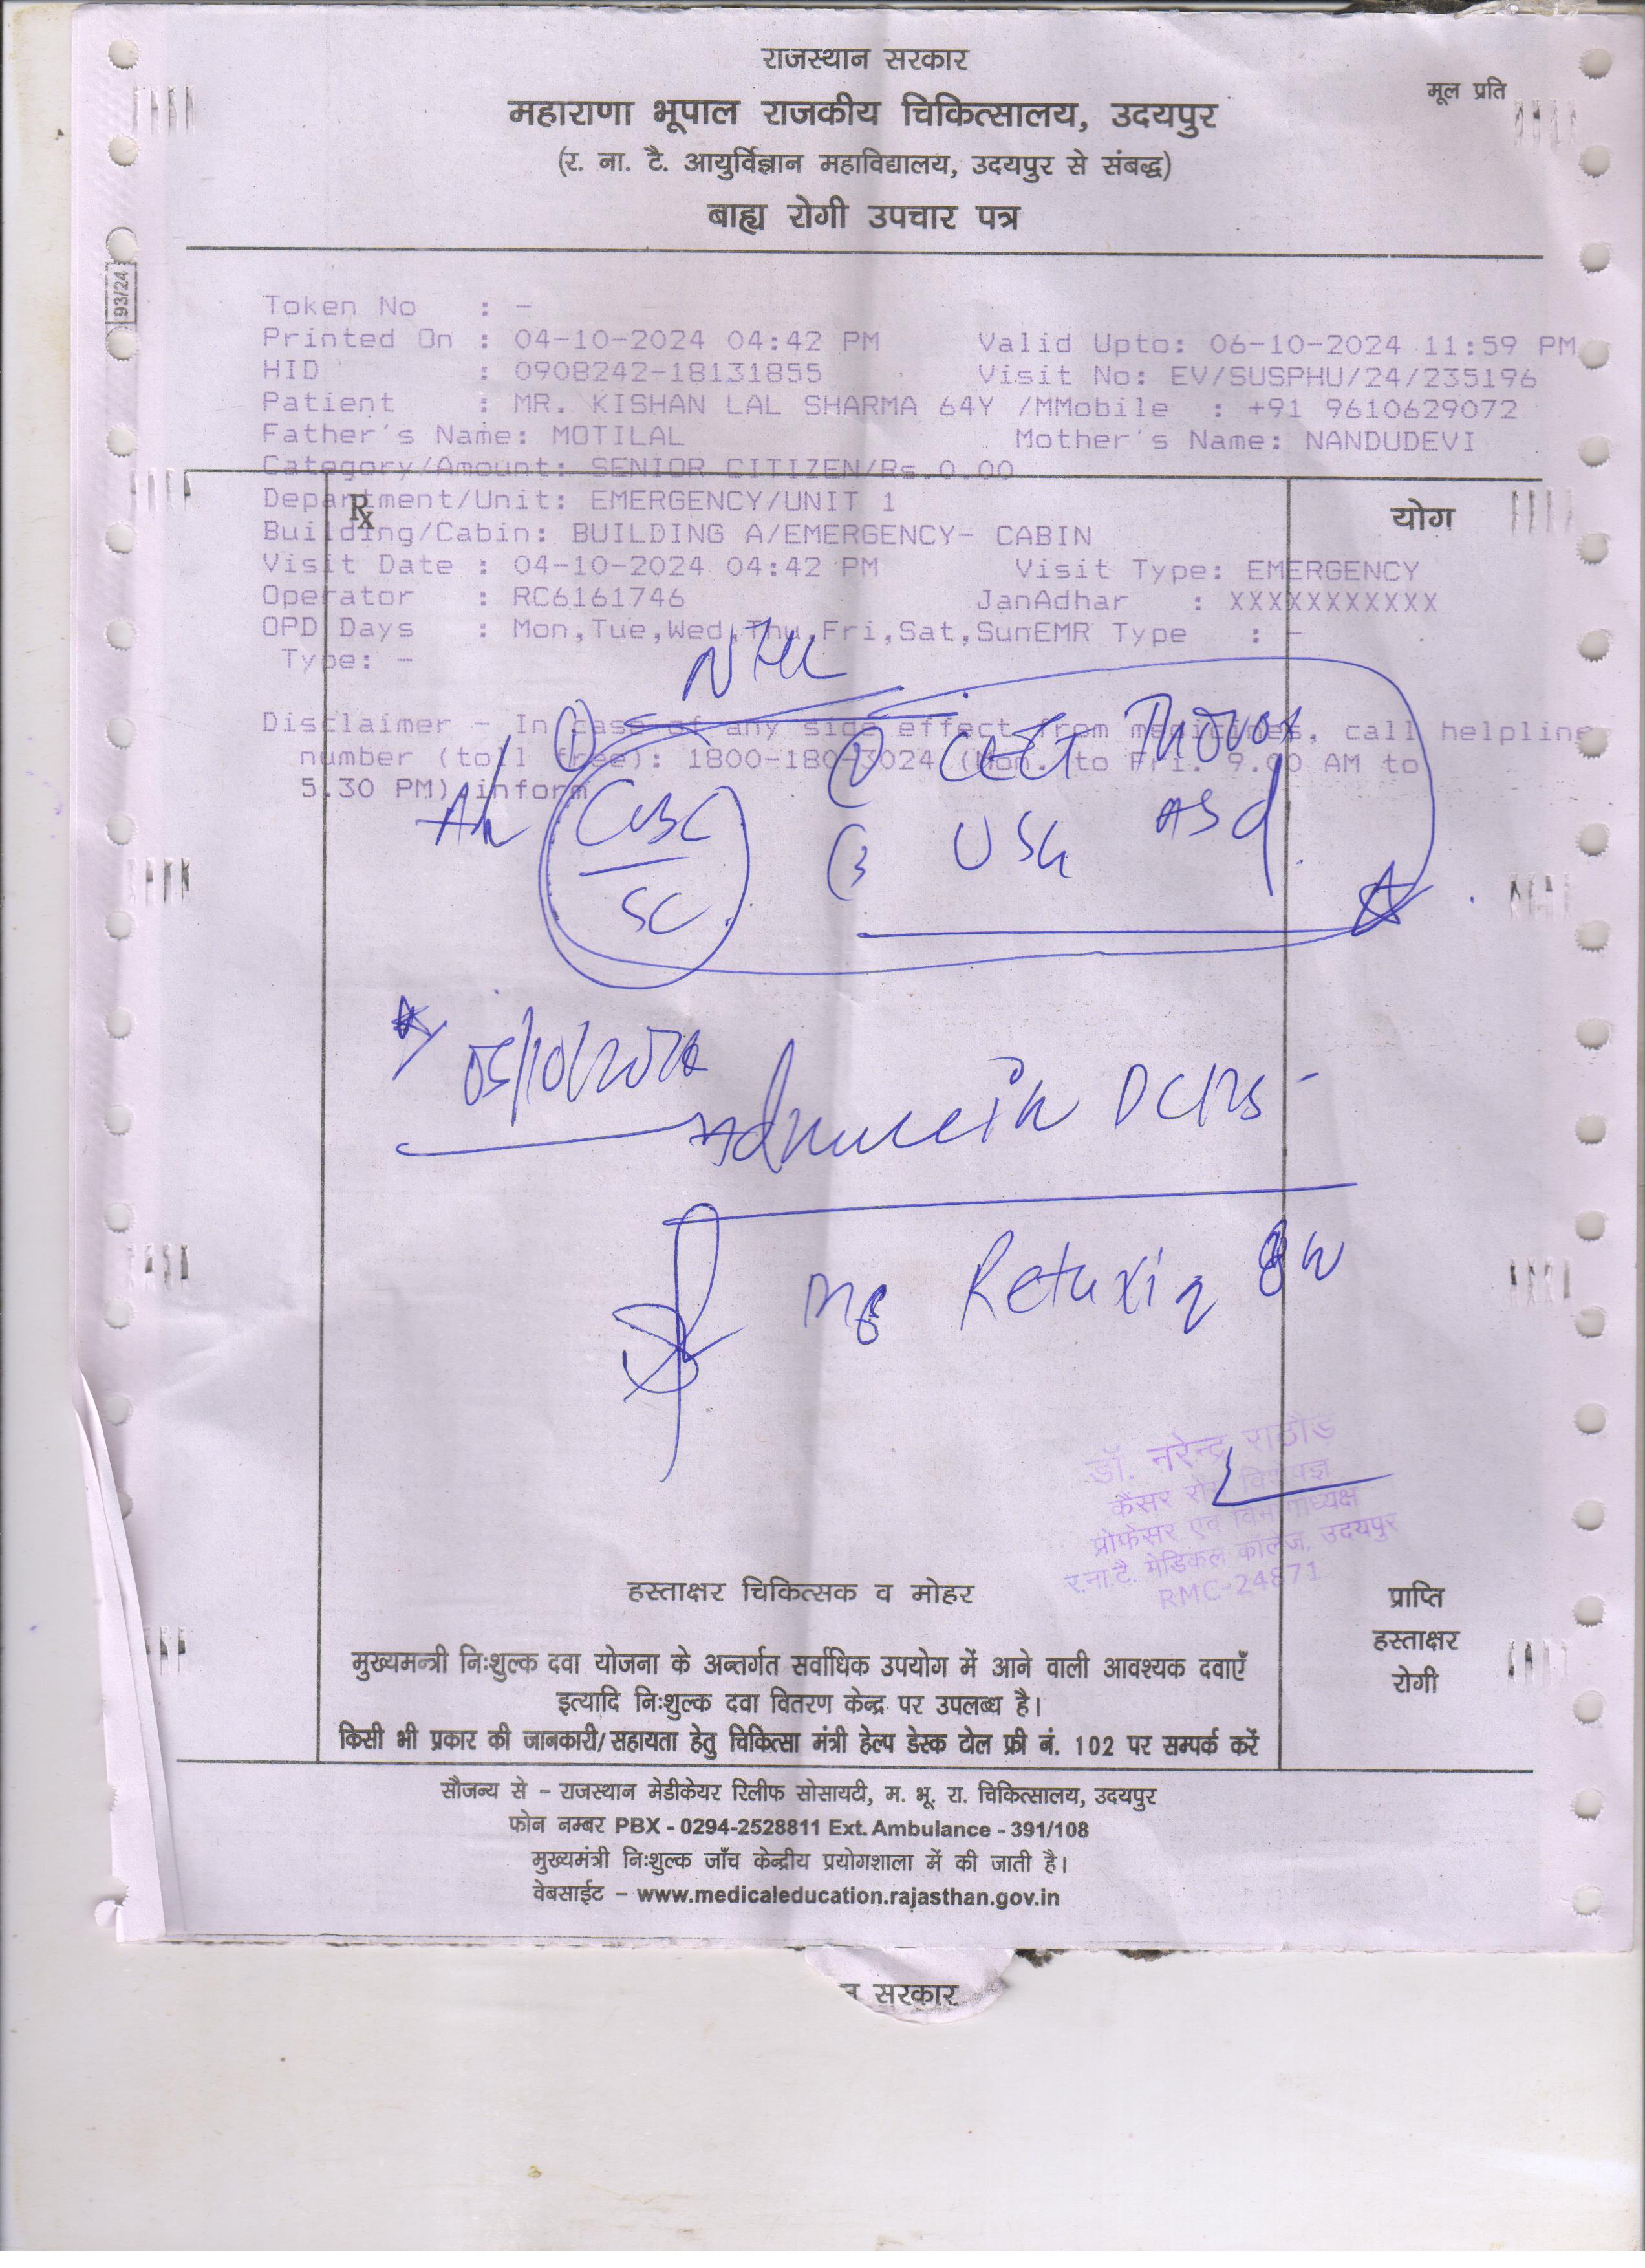 राजस्थान सरकार
मूल प्रति
महाराणा भूपाल राजकीय चिकित्सालय, उदयपुर
(र. ना. टै. आयुर्विज्ञान महाविद्यालय, उदयपुर से संबद्ध)
बाह्य रोगी उपचार पत्र
93/24
Token No : -
Printed On : 04-10-2024 04:42 PM Valid Upto: 06-10-2024 11:59 PM
HID : 0908242-18131855 Visit No: EV/SUSPHU/24/235196
Patient : MR. KISHAN LAL SHARMA 64Y /MMobile : +91 9610629072
Father's Name: MOTILAL Mother's Name: NANDUDEVI
Category/Amount: SENIOR CITIZEN/Rs.0.00
Department/Unit: EMERGENCY/UNIT 1
Rx
योग
Building/Cabin: BUILDING A/EMERGENCY- CABIN
Visit Date : 04-10-2024 04:42 PM Visit Type: EMERGENCY
Operator : RC6161746 JanAdhar : XXXXXXXXXXX
OPD Days : Mon,Tue,Wed,Thu,Fri,Sat,SunEMR Type : -
Type: -
Disclaimer - In case of any side effect from medicines, call helpline
number (toll free): 1800-180-3024 (Mon. to Fri. 9.00 AM to
5.30 PM) inform
① CBC ② CECT Thorax
SC ③ USG
05/10/2024
डॉ. नरेन्द्र राठौड़
कैंसर रोग विशेषज्ञ
प्रोफेसर एवं विभागाध्यक्ष
र.ना.टै. मेडिकल कॉलेज, उदयपुर
RMC-24871
हस्ताक्षर चिकित्सक व मोहर
प्राप्ति
हस्ताक्षर
रोगी
मुख्यमन्त्री निःशुल्क दवा योजना के अन्तर्गत सर्वाधिक उपयोग में आने वाली आवश्यक दवाएँ
इत्यादि निःशुल्क दवा वितरण केन्द्र पर उपलब्ध है।
किसी भी प्रकार की जानकारी/सहायता हेतु चिकित्सा मंत्री हेल्प डेस्क टोल फ्री नं. 102 पर सम्पर्क करें
सौजन्य से – राजस्थान मेडीकेयर रिलीफ सोसायटी, म. भू. रा. चिकित्सालय, उदयपुर
फोन नम्बर PBX - 0294-2528811 Ext. Ambulance - 391/108
मुख्यमंत्री निःशुल्क जाँच केन्द्रीय प्रयोगशाला में की जाती है।
वेबसाईट – www.medicaleducation.rajasthan.gov.in
सरकार